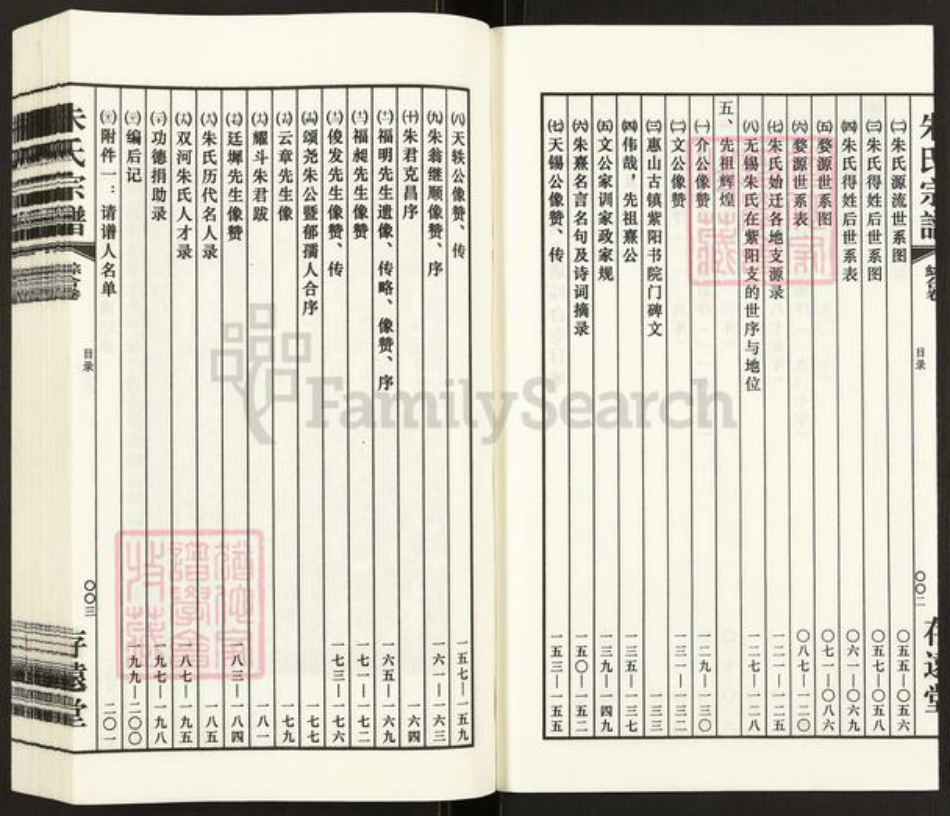 朱氏宗谱
综合卷
目录
〇〇二
存远堂
㈡朱氏源流世系图 〇五五—〇五六
㈢朱氏得姓后世系图 〇五七—〇五八
㈣朱氏得姓后世系表 〇六一—〇六九
㈤婺源世系图 〇七一—〇八六
㈥婺源世系表 〇八七—一二〇
㈦朱氏始迁各地支源录 一二一—一二五
㈧无锡朱氏在紫阳支的世序与地位 一二七—一二八
五、先祖辉煌
㈠介公像赞 一二九—一三〇
㈡文公像赞 一三一—一三二
㈢惠山古镇紫阳书院门碑文 一三三
㈣伟哉，先祖熹公 一三五—一三七
㈤文公家训家政家规 一三九—一四九
㈥朱熹名言名句及诗词摘录 一五〇—一五二
㈦天锡公像赞、传 一五三—一五五
㈧天轶公像赞、传 一五七—一五九
㈨朱翁继顺像赞、序 一六一—一六三
㈩朱君克昌序 一六四
福明先生遗像、传略、像赞、序 一六五—一六九
福昶先生像赞 一七一—一七二
俊发先生像赞、传 一七三—一七六
颂尧朱公暨郁孺人合序 一七七
云章先生像 一七九
耀斗朱君跋 一八一
廷墀先生像赞 一八三—一八四
朱氏历代名人录 一八五
双河朱氏人才录 一八七—一九五
功德捐助录 一九七—一九八
编后记 一九九—二〇〇
附件一：请谱人名单 二〇一
朱氏宗谱
综合卷
目录
〇〇三
存远堂
FamilySearch